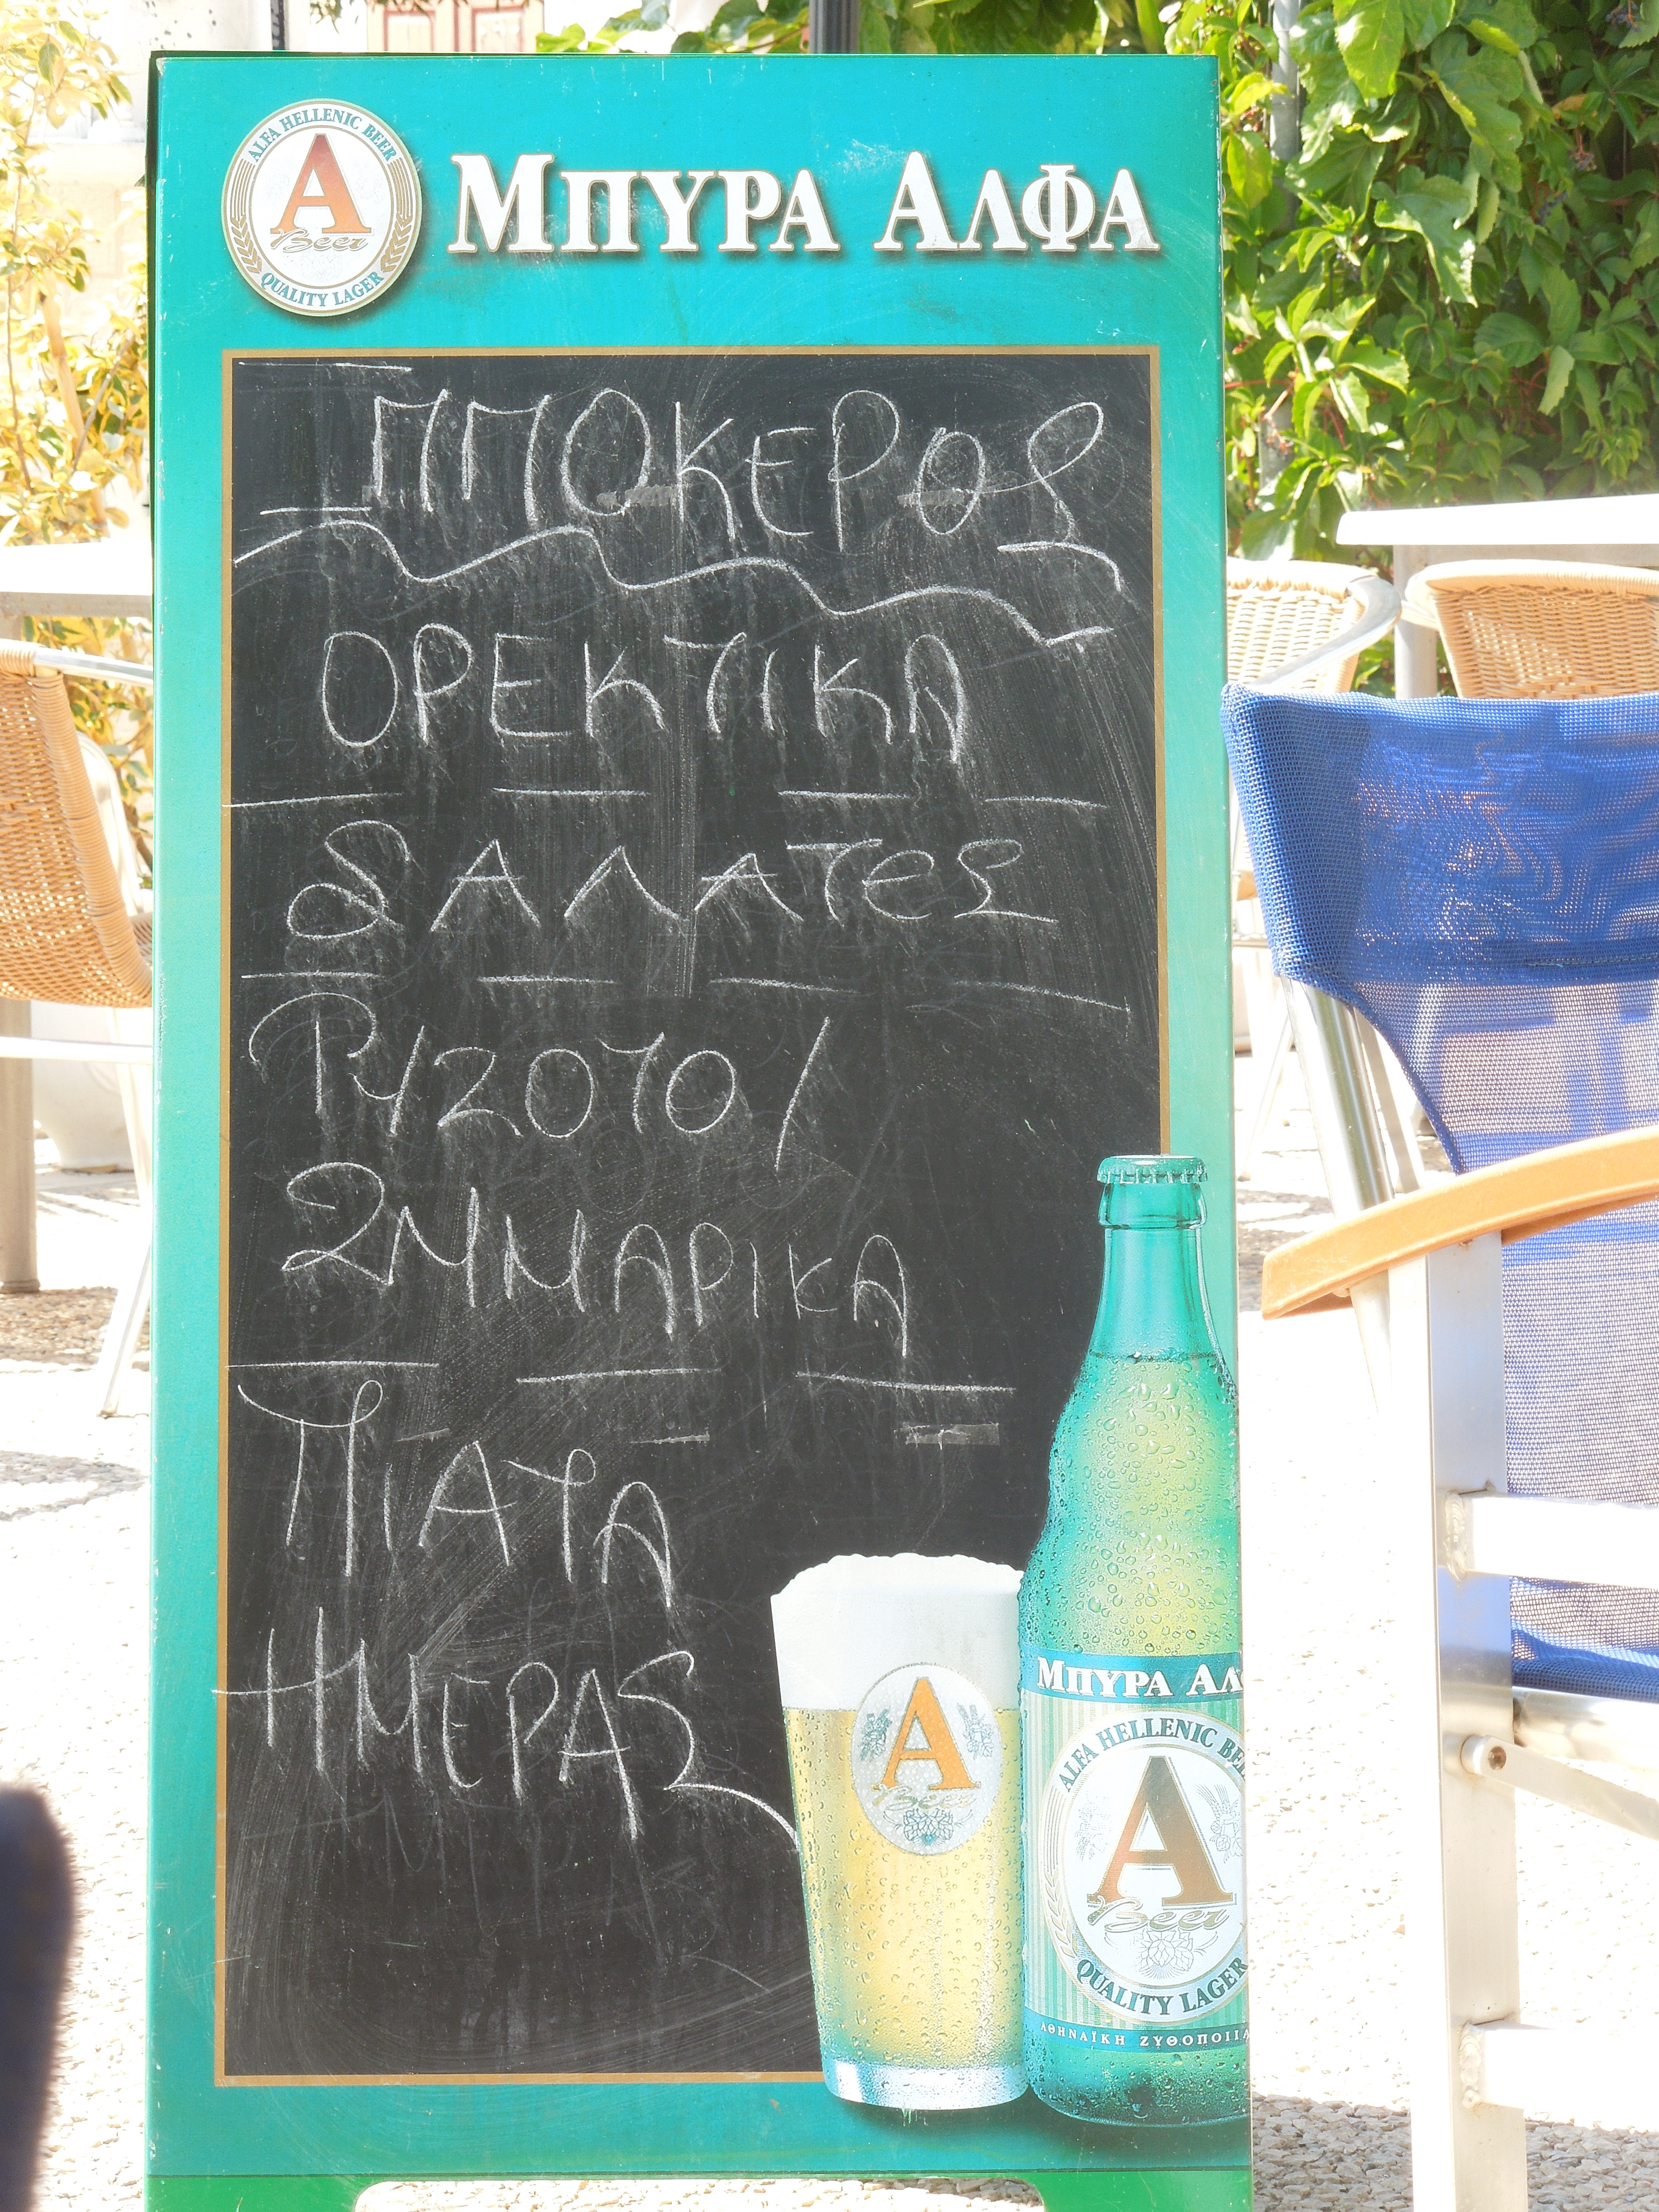 ALFA HELLENIC BEER
A
Beer
QUALITY LAGER
ΜΠΥΡΑ ΑΛΦΑ
ΙΠΠΟΚΕΡΟΣ
ΟΡΕΚΤΙΚΑ
ΣΑΛΑΤΕΣ
ΡΥΖΟΤΟ/
ΖΥΜΑΡΙΚΑ
ΠΙΑΤΑ
ΗΜΕΡΑΣ
A
Beer
ΜΠΥΡΑ ΑΛ
ALFA HELLENIC BEE
A
Beer
QUALITY LAGER
ΑΘΗΝΑΪΚΗ ΖΥΘΟΠΟΙΙΑ